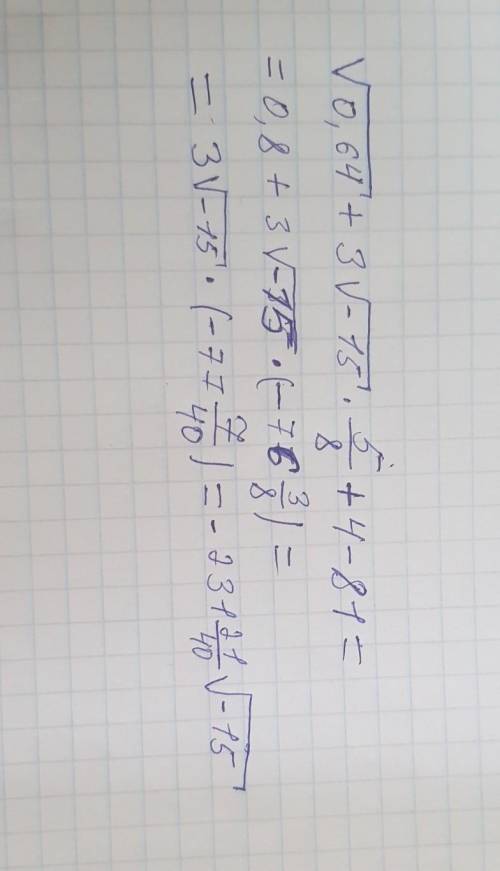 √0,64 + 3√-15 · 5/8 + 4 - 81 =
= 0,8 + 3√-15 · (-76 3/8) =
= 3√-15 · (-77 7/40) = -231 21/40 √-15